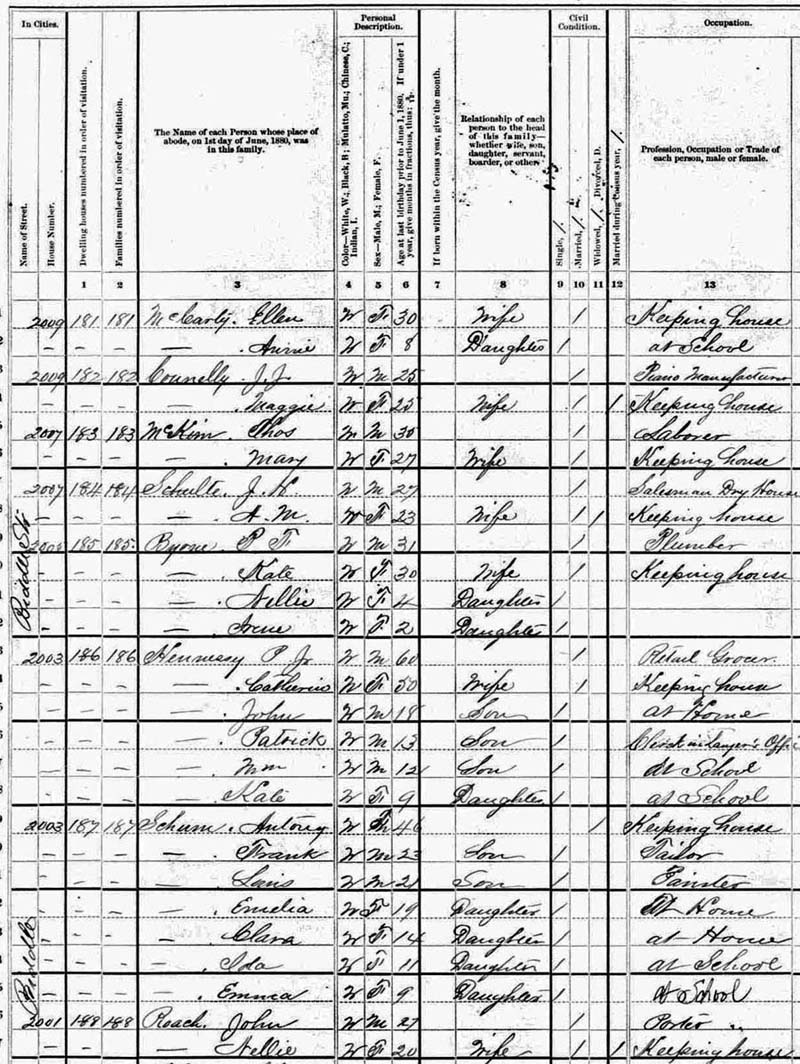 In Cities.
Personal Description.
Civil Condition.
Occupation.
Name of Street.
House Number.
Dwelling houses numbered in order of visitation.
Families numbered in order of visitation.
The Name of each Person whose place of abode, on 1st day of June, 1880, was in this family.
Color—White, W.; Black, B.; Mulatto, Mu.; Chinese, C.; Indian, I.
Sex—Male, M.; Female, F.
Age at last birthday prior to June 1, 1880. If under 1 year, give months in fractions, thus:
If born within the Census year, give the month.
Relationship of each person to the head of this family—whether wife, son, daughter, servant, boarder, or other.
Single, /.
Married, /.
Widowed, /. Divorced, D.
Married during Census year, /.
Profession, Occupation or Trade of each person, male or female.
1 2 3 4 5 6 7 8 9 10 11 12 13
2009 181 181 McCarty. Ellen W F 30 Wife / Keeping house
— — — — . Annie W F 8 Daughter / at School
2009 182 182 Connelly J. J. W M 25 / Piano Manufacturer
— — — — . Maggie W F 25 Wife / 1 Keeping house
2007 183 183 McKim. Thos W M 30 / Laborer
— — — — . Mary W F 27 Wife / Keeping house
2007 184 184 Schulte. J. H. W M 27 / Salesman Dry House
— — — — . A. M. W F 23 Wife / / Keeping house
185 185. Byrne. P F W M 31 / Plumber
— — — — Kate W F 30 Wife / Keeping house
— — — — . Nellie W F 4 Daughter /
— — — — . Irene W F 2 Daughter /
Biddle St.
2003 186 186 Hennessy P Jr W M 60 / Retail Grocer.
— — — — . Catherine W F 50 Wife / Keeping house
— — — — . John W M 18 Son / at Home
— — — — . Patrick W M 13 Son / Clerk in Lawyer's Offi
— — — — . Wm W M 12 Son / at School
— — — — . Kate W F 9 Daughter / at School
2003 187 187 Schum. Antony W F 46 / Keeping house
— — — — . Frank W M 23 Son / Tailor
— — — — . Louis W M 21 Son / Painter
— — — — . Emelia W F 19 Daughter / At Home
— — — — . Clara W F 14 Daughter / at Home
— — — — . Ida W F 11 Daughter / at School
— — — — . Emma W F 9 Daughter / At School
Biddle
2001 188 188 Roach. John W M 27 / Porter
— — — — . Nellie W F 20 Wife / 1 Keeping house